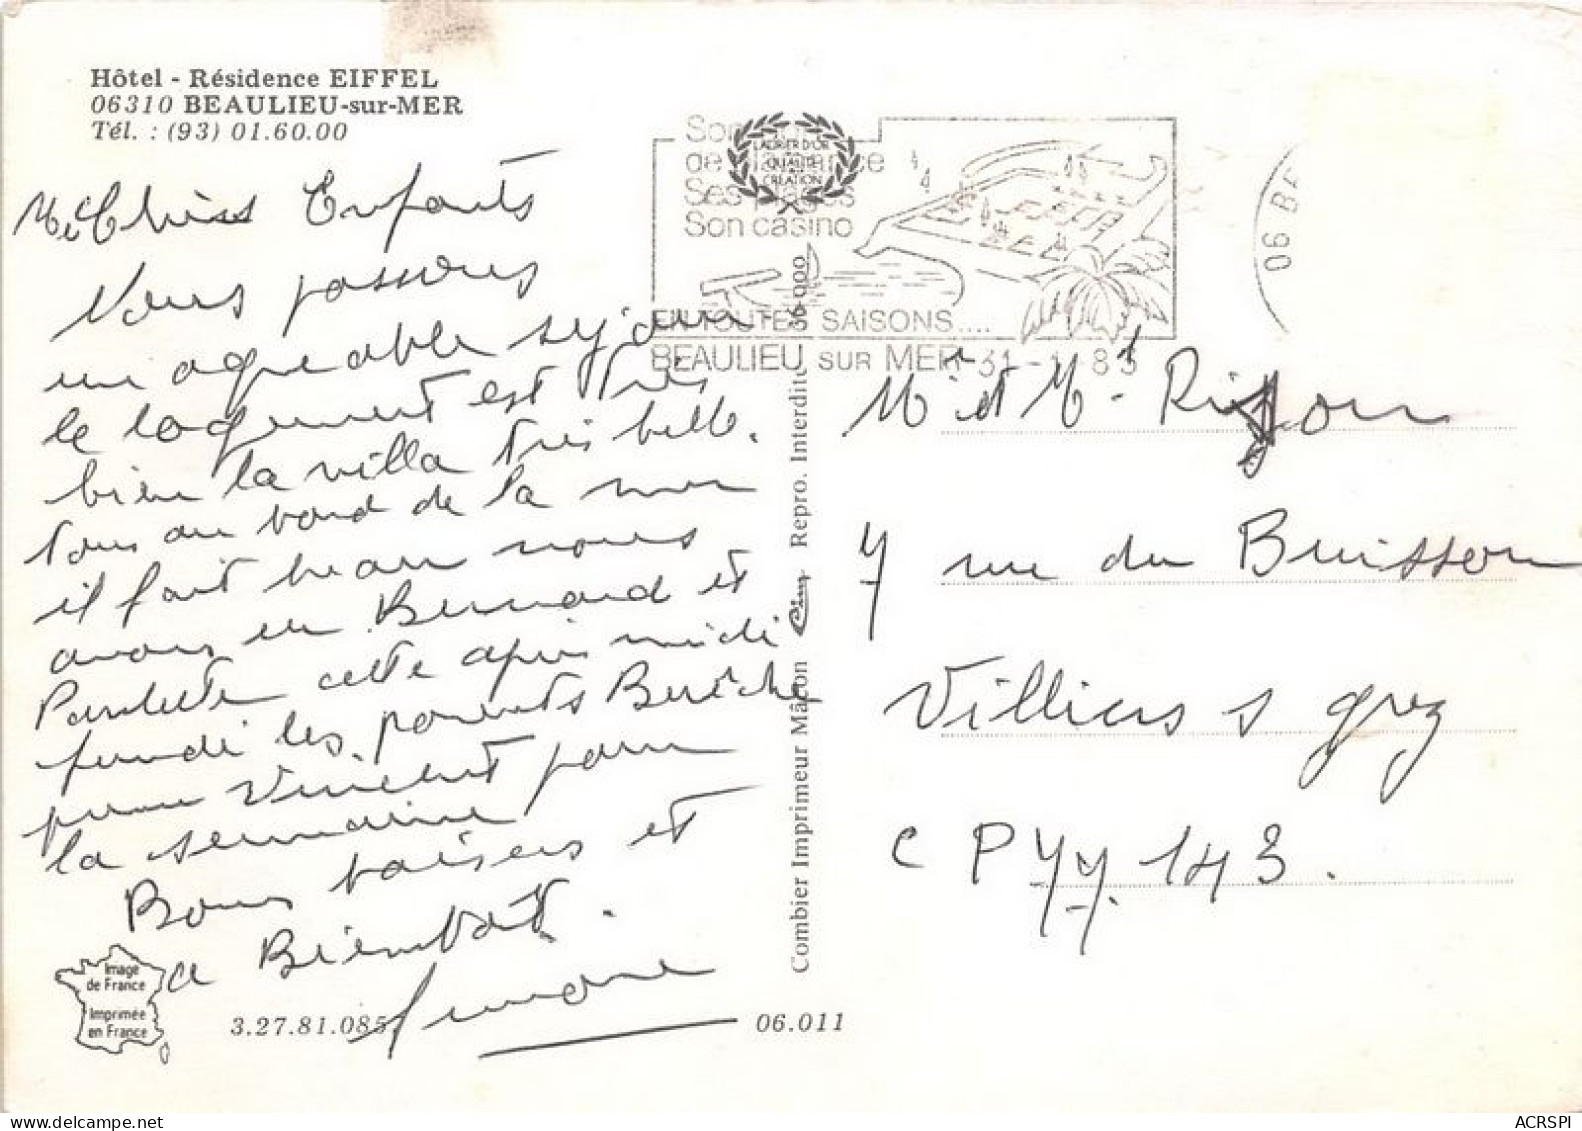 Hôtel - Résidence EIFFEL
06310 BEAULIEU-sur-MER
Tél. : (93) 01.60.00
Enfants
Nous passons
un agreable séjour
le logement est très
bien la villa très belle.
tous au bord de la mer
il fait beau nous
avons eu Bernard et
Paulette cette après midi
les parents
Vincent pour
la semaine
Bons baisers et
a Bientôt.
Simone
Image
de France
Imprimée
en France
3.27.81.085
06.011
Combier Imprimeur Mâcon Cim Repro. Interdite 36 000
LAURIER D'OR
QUALITÉ
CRÉATION
Son
de
Ses plages
Son casino
EN TOUTES SAISONS....
BEAULIEU SUR MER
06 BE
Mr et Me
rue du Buisson
Villiers s grez
CP 77. 143.
ACRSPI